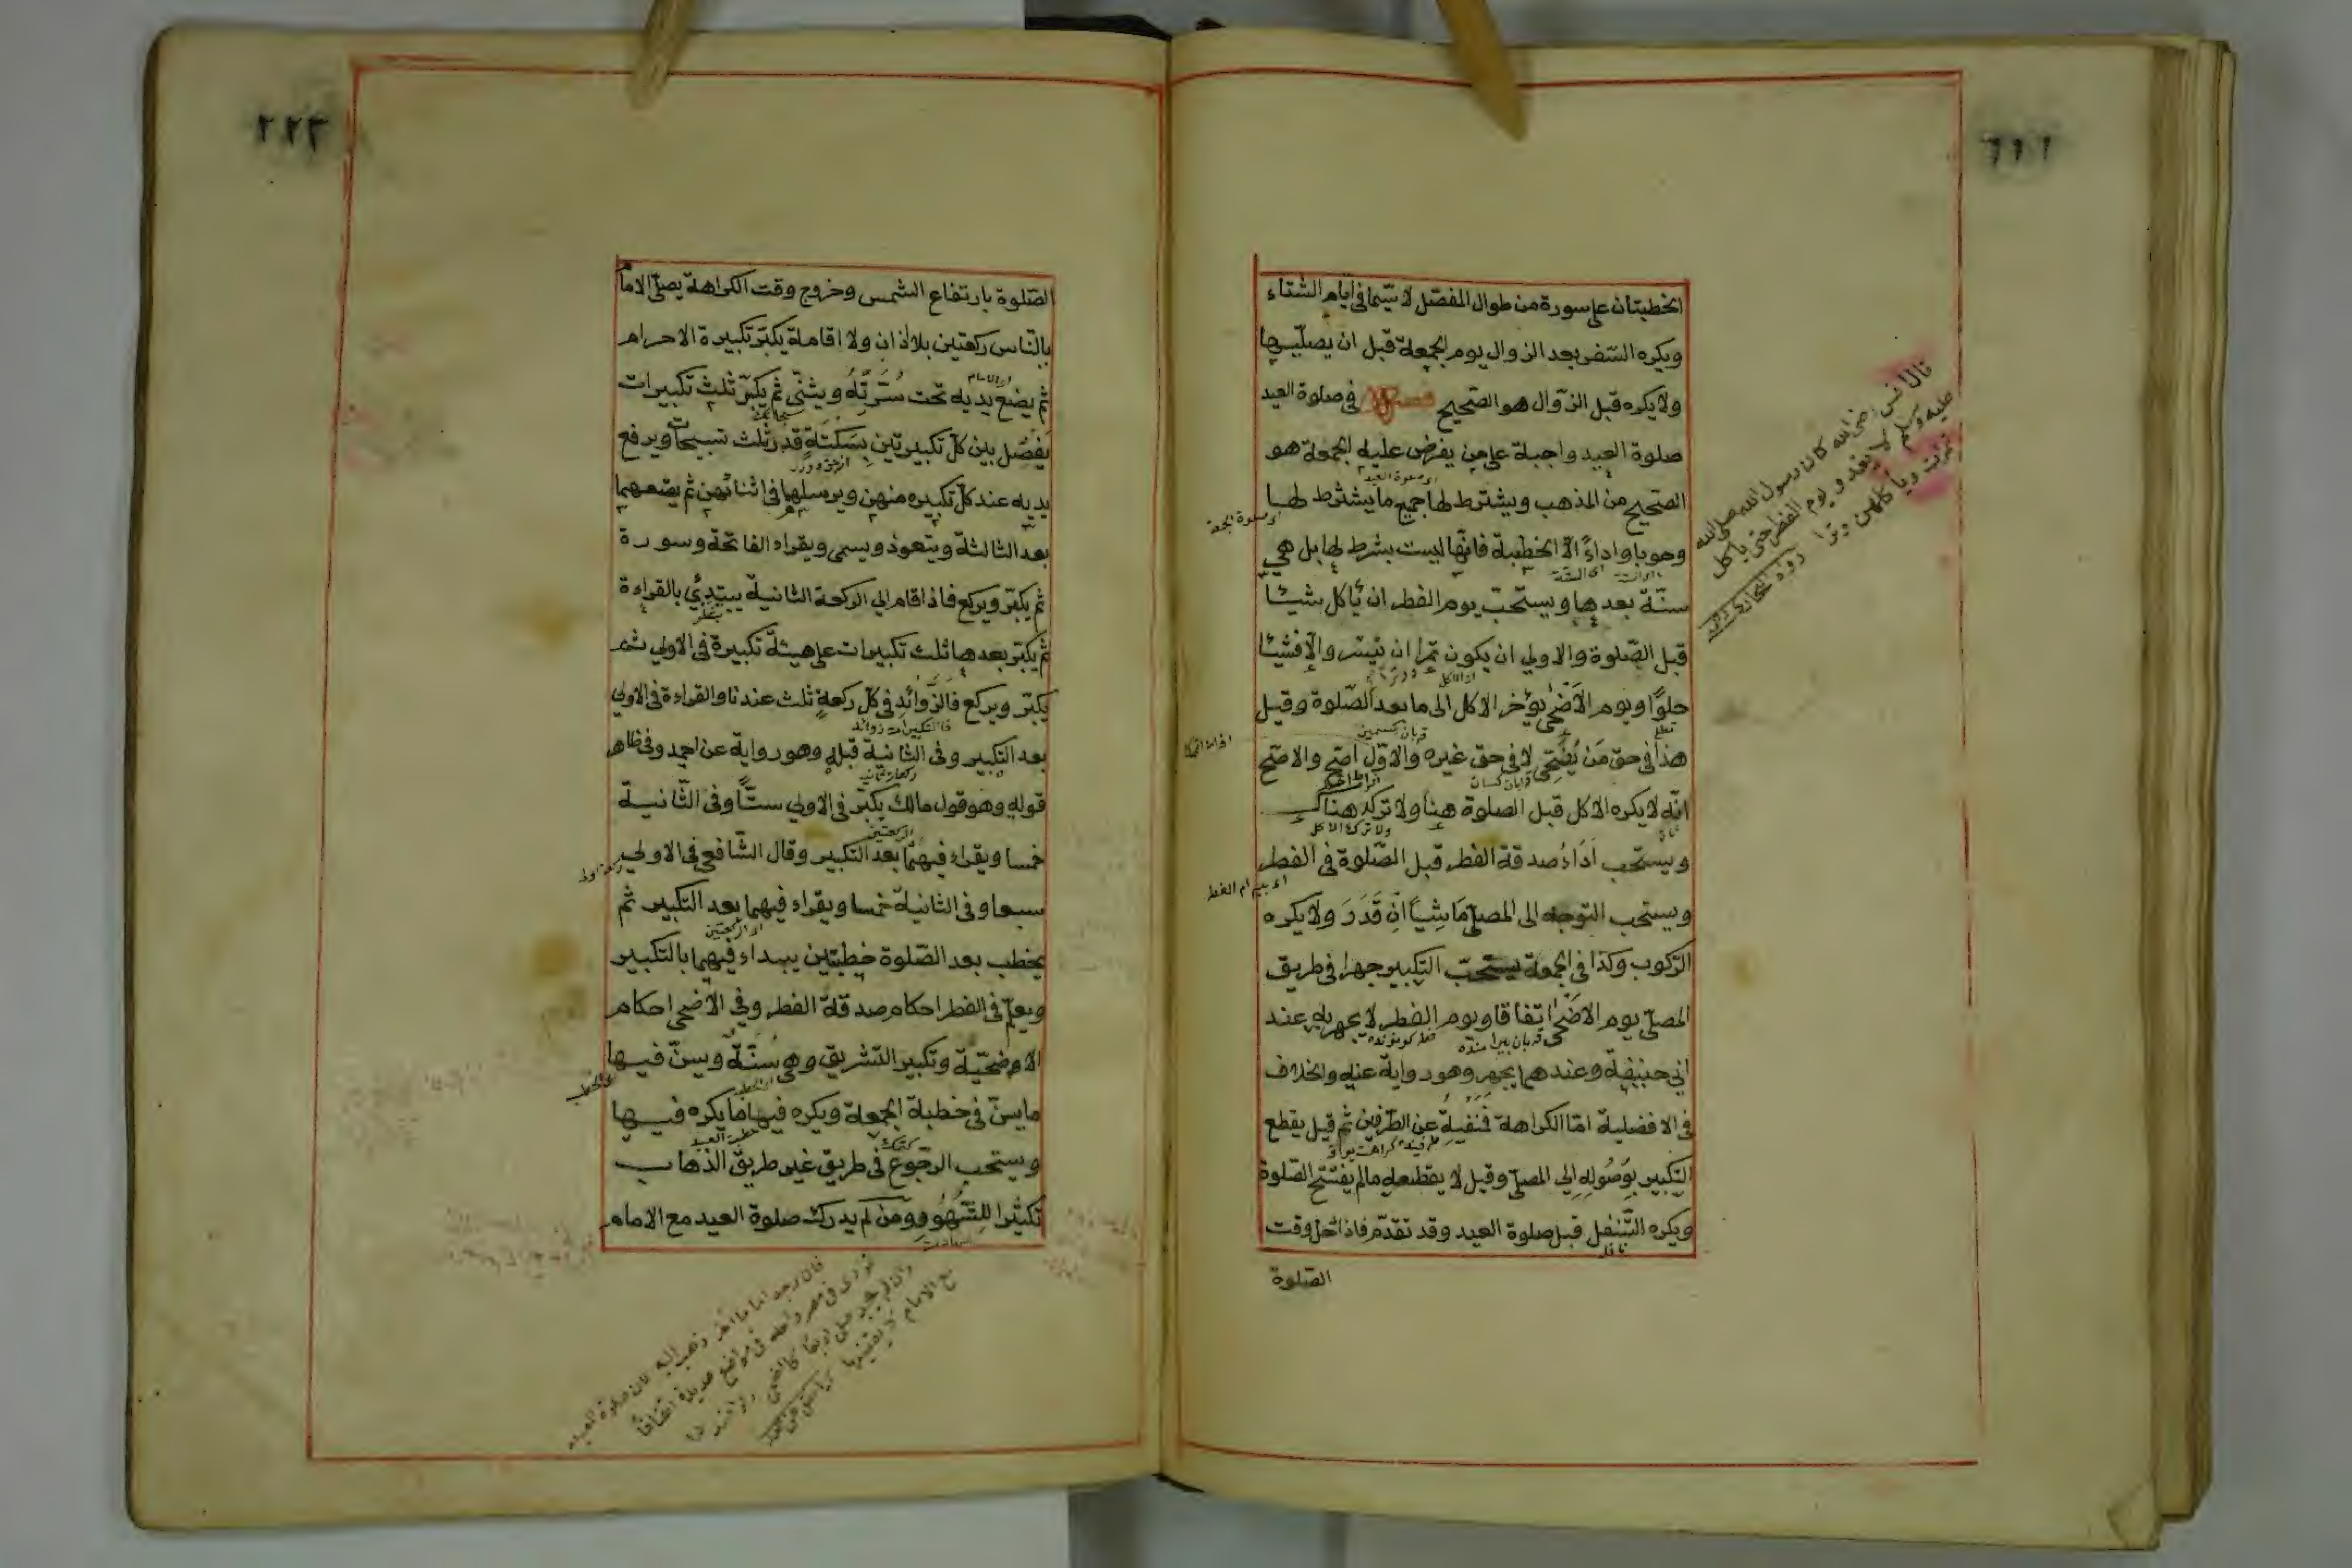 الخطبتان على سورة من طوال المفصّل لا سيّما في ايّام الشتاء
ويكره السّفر بعد الزوال يوم الجمعة قبل ان يصلّيها
ولا يكره قبل الزوال هو الصّحيح فصل في صلوة العيد
صلوة العيد واجبة على من يفرض عليه الجمعة هو
الصّحيح من المذهب ويشترط لها جميع ما يشترط لها
وجوبا واداءً الّا الخطبة فانّها ليست بشرط لها بل هي
سنّة بعدها ويستحبّ يوم الفطر ان يأكل شيئا
قبل الصّلوة والاولى ان يكون تمرا ان تيسّر والّا فشيئا
حلوًا ويوم الأضحى يؤخر الاكل الى ما بعد الصّلوة وقيل
هذا في حق من يُضَحّي لا في حق غيره والاوّل اصح والاصح
انّه لا يكره الاكل قبل الصلوة هنا ولا تركه هناك
ويستحب اداءُ صدقة الفطر قبل الصّلوة في الفطر
ويستحب التوجه الى المصلّى مَاشِيًا ان قَدَرَ ولا يكره
الرّكوب وكذا في الجمعة يستحبّ التكبير جهرا في طريق
المصلّى يوم الاضحى اتفاقا ويوم الفطر لا يجهر به عند
ابي حنيفة وعندهما يجهر وهو رواية عنه والخلاف
في الافضلية امّا الكراهة فمنفيةٌ عن الطّرفين ثم قيل يقطع
التكبير بوُصُوله الى المصلّى وقيل لا يقطعه ما لم يفتتح الصّلوة
ويكره التّنفل قبل صلوة العيد وقد تقدّم فاذا حل وقت
الصّلوة
قال انس رضى الله كان رسول الله صلى الله
عليه وسلم لا يغدو يوم الفطر حتى يأكل
تمرات ويأكلهن وترا رواه البخارى
اى صلوة العيد
اى صلوة الجمعة
٢٢٣
الصّلوة بارتفاع الشمس وخروج وقت الكراهة يصلّى الامام
بالنّاس ركعتين بلا اذان ولا اقامة يكبّر تكبيرة الاحرام
ثم يضع يديه تحت سُرَّتِهُ ويثنّى ثم يكبّر ثلث تكبيرات
يَفصُل بين كلّ تكبيرتين بسَكتَة قدر ثلث تسبيحات ويرفع
يديه عند كلّ تكبيره منهن ويرسلهما في اثنائهن ثم يضعهما
بعد الثالثة ويتعوذ ويسمى ويقراء الفاتحة وسورة
ثم يكبّر ويركع فاذا قام الى الركعة الثانية يبتدِئُ بالقراءة
ثم يكبّر بعدها ثلث تكبيرات على هيئة تكبيرة في الاولى ثم
يكبّر ويركع فالزّوائد في كلّ ركعةٍ ثلث عندنا والقراءة في الاولى
بعد التكبير وفي الثانية قبله وهو رواية عن احمد وفي ظاهر
قوله وهو قول مالك يكبّر في الاولى ستًّا وفي الثّانية
خمسا ويقراء فيهما بعد التكبير وقال الشّافعي في الاولى
سبعا وفي الثانية خمسا ويقراء فيهما بعد التكبير ثم
يخطب بعد الصّلوة خطبتين يبداء فيهما بالتكبير
ويعلّم في الفطر احكام صدقة الفطر وفي الأضحى احكام
الاضحيّة وتكبير التّشريق وهى سُنّة ويسنّ فيها
ما يسنّ في خطبة الجمعة ويكره فيها ما يكره فيها
ويستحب الرّجوع في طريق غير طريق الذّهاب
تكثيرًا للشّهُود ومن لم يدرك صلوة العيد مع الامام
اى الامام
اى الركعتين
خطبة العيد
فان وجد اماما آخر ذهب اليه لان صلوة العيد
تؤدى في مصر واحد في مواضع عديدة اتفاقا
مع الامام لا يقضيها